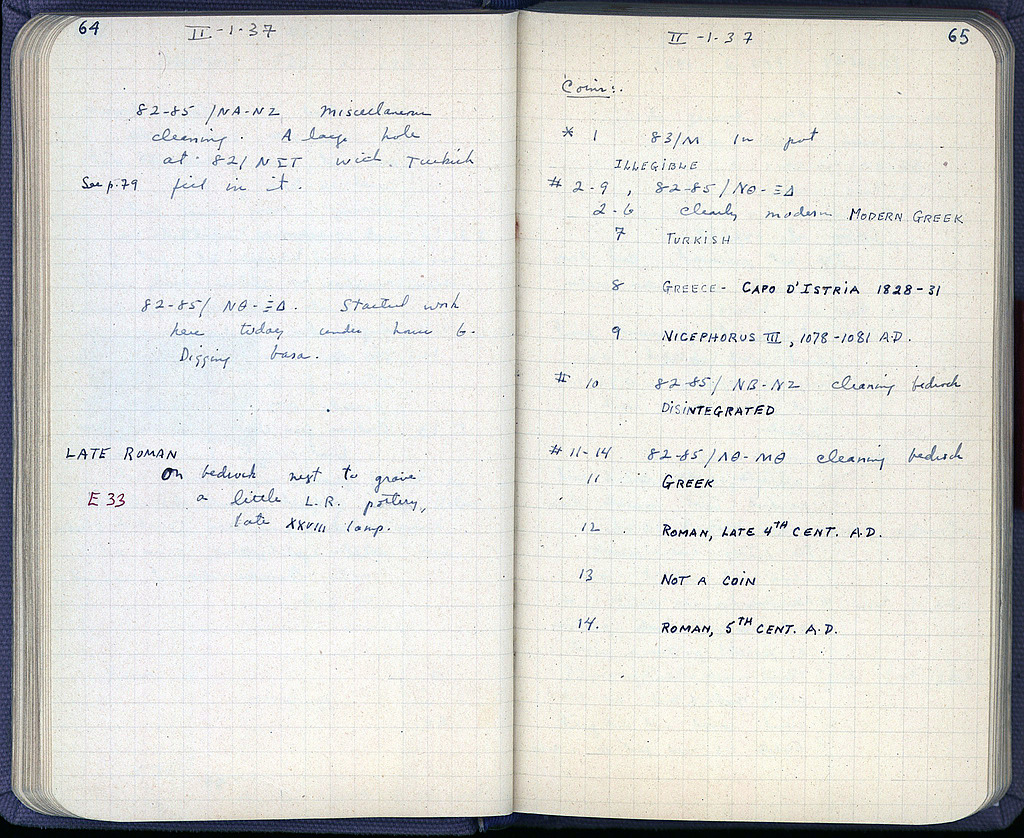 64
II-1-37
82-85/NA-NZ Miscellaneous
cleaning. A large hole
at 82/NΣT with Turkish
See p.79 fill in it.
82-85/ NΘ-ΞΔ. Started work
here today under house 6.
Digging
LATE ROMAN
On bedrock next to grave
E 33 a little L.R. pottery,
late XXVIII lamp.
65
II-1-37
Coins:
* 1 83/M in pot
ILLEGIBLE
# 2-9, 82-85/NΘ-ΞΔ
2-6 clearly modern MODERN GREEK
7 TURKISH
8 GREECE- CAPO D'ISTRIA 1828-31
9 NICEPHORUS III, 1078-1081 A.D.
# 10 82-85/ NB-NZ cleaning bedrock
DISINTEGRATED
# 11-14 82-85/ΛΘ-MΘ cleaning bedrock
11 GREEK
12 ROMAN, LATE 4TH CENT. A.D.
13 NOT A COIN
14. ROMAN, 5TH CENT. A.D.